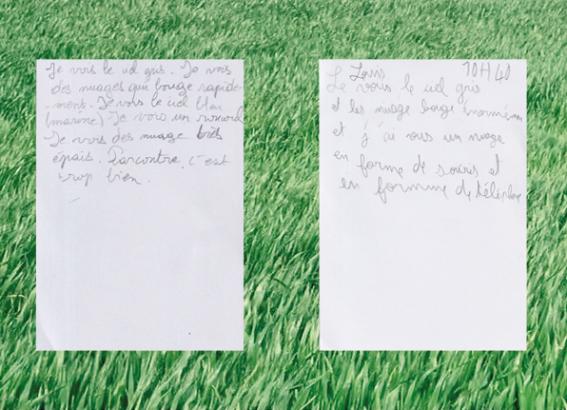 Je vois le ciel gris. Je vois
des nuages qui bouge rapide-
ment. Je vois le ciel bleu
(marine) Je vois un
Je vois des nuage
épais. Parcontre, c'est
trop bien.
Louis 10H40
Le vois le ciel gris
et les nuage énormémen
et j'ai vous un nuage
en forme de souris et
en formme de téléphone